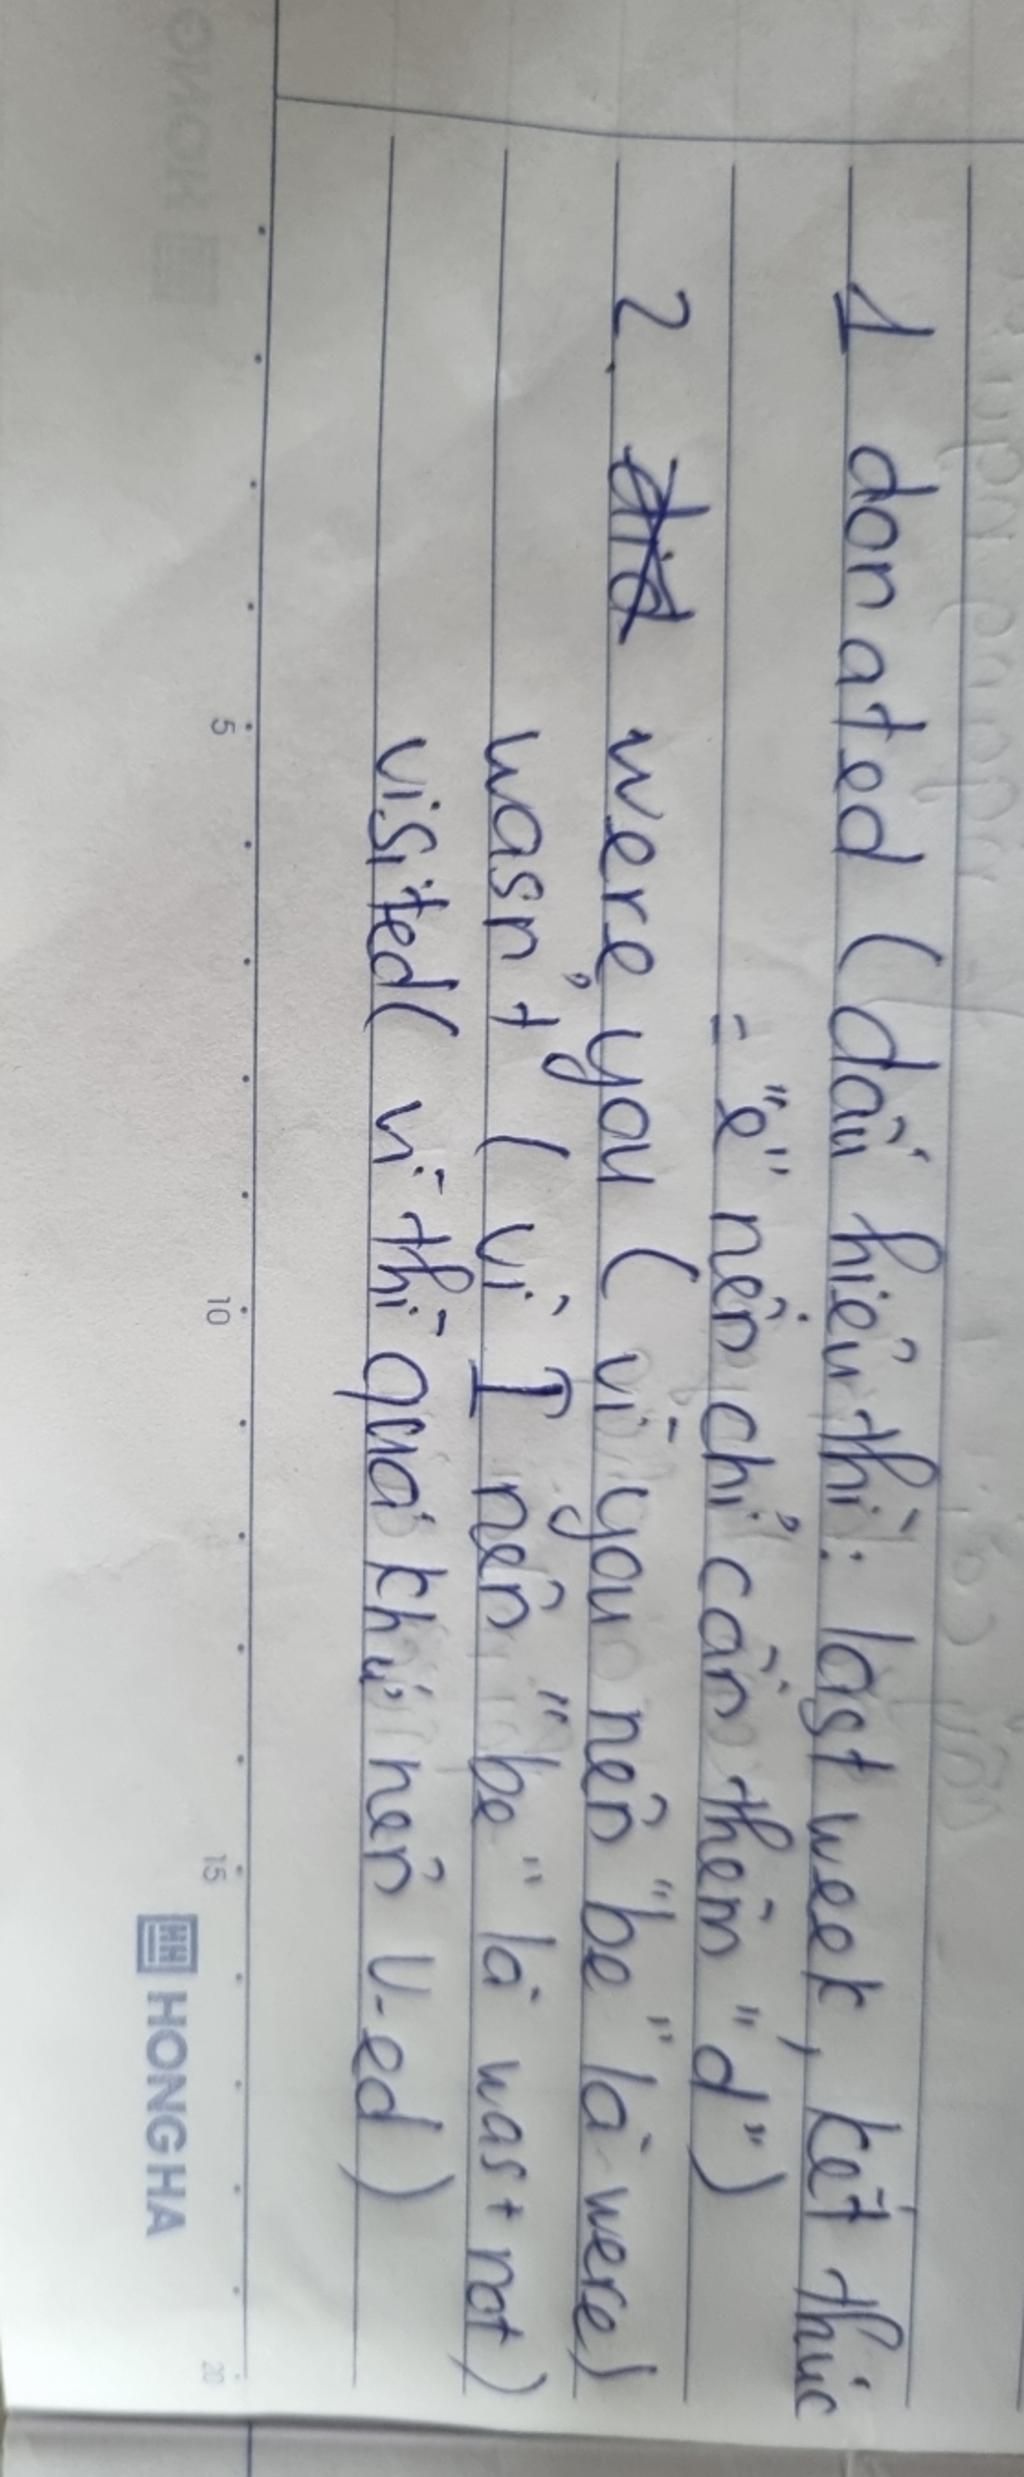 1 donated (dấu hiệu thì: last week, kết thúc
= "e" nên chỉ cần thêm "d")
2. did were you (vì you nên "be" là were)
wasn't (vì I nên "be" là was + not)
visited (vì thì quá khứ nên V-ed)
5 10 15 20
HONG HA